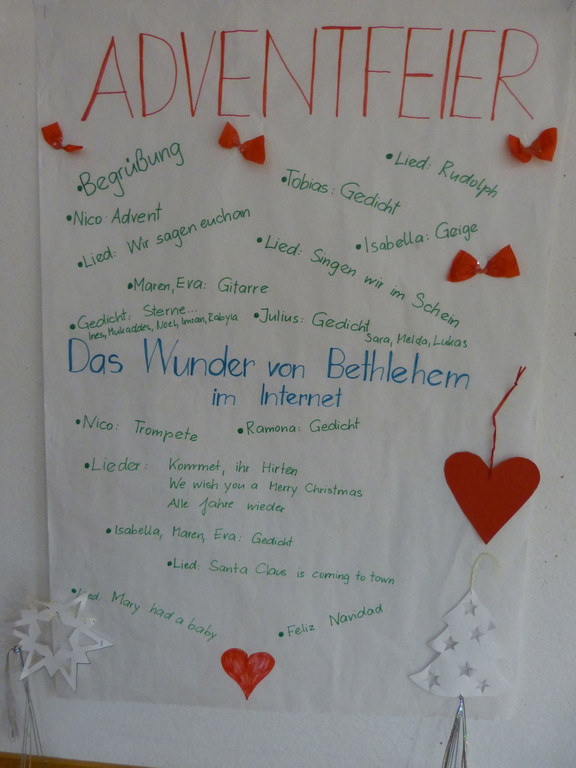 ADVENTFEIER
• Begrüßung
• Lied: Rudolph
• Tobias: Gedicht
• Nico: Advent
• Lied: Wir sagen euch an
• Isabella: Geige
• Lied: Singen wir im Schein
• Maren, Eva: Gitarre
• Gedicht: Sterne...
Ines, Mukaddes, Noel, Imran, Rabyla
• Julius: Gedicht
Sara, Melda, Lukas
Das Wunder von Bethlehem
im Internet
• Nico: Trompete
• Ramona: Gedicht
• Lieder: Kommet, ihr Hirten
We wish you a Merry Christmas
Alle Jahre wieder
• Isabella, Maren, Eva: Gedicht
• Lied: Santa Claus is coming to town
• Lied: Mary had a baby
• Feliz Navidad